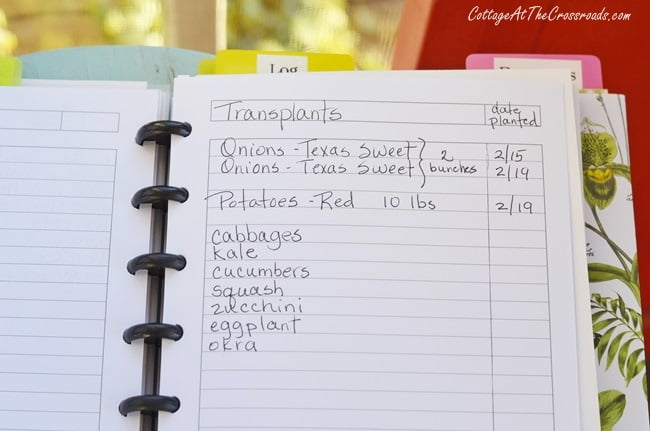 CottageAtTheCrossroads.com
Log
Transplants date planted
Onions - Texas Sweet 2/15
Onions - Texas Sweet 2 bunches 2/19
Potatoes - Red 10 lbs 2/19
cabbages
kale
cucumbers
squash
zucchini
eggplant
okra